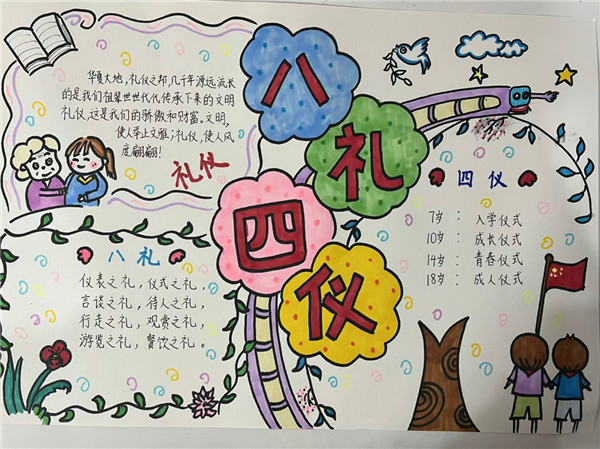 八礼
四仪
华夏大地，礼仪之邦，几千年源远流长
的是我们祖辈世世代代传承下来的文明
礼仪，这是我们的骄傲和财富。文明，
使人举止文雅；礼仪，使人风
度翩翩！
礼仪
八礼
仪表之礼，仪式之礼，
言谈之礼，待人之礼，
行走之礼，观赏之礼，
游览之礼，餐饮之礼。
四仪
7岁：入学仪式
10岁：成长仪式
14岁：青春仪式
18岁：成人仪式